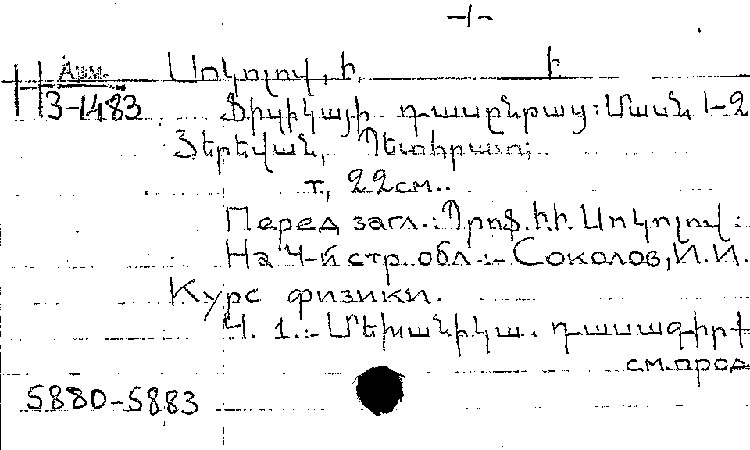 -1-
Арм. Սոկոլով, Ի. Ի.
3-1483 Ֆիզիկայի դասընթաց: Մասն 1-2
Յերեվան, Պետհրատ;
т., 22см..
Перед загл.: Պրոֆ. Ի.Ի. Սոկոլով:
На 4-й стр. обл.:- Соколов, И.И.
Курс физики.
Ч. 1.:- Մեխանիկա. դասագիրք
см.прод
5880-5883